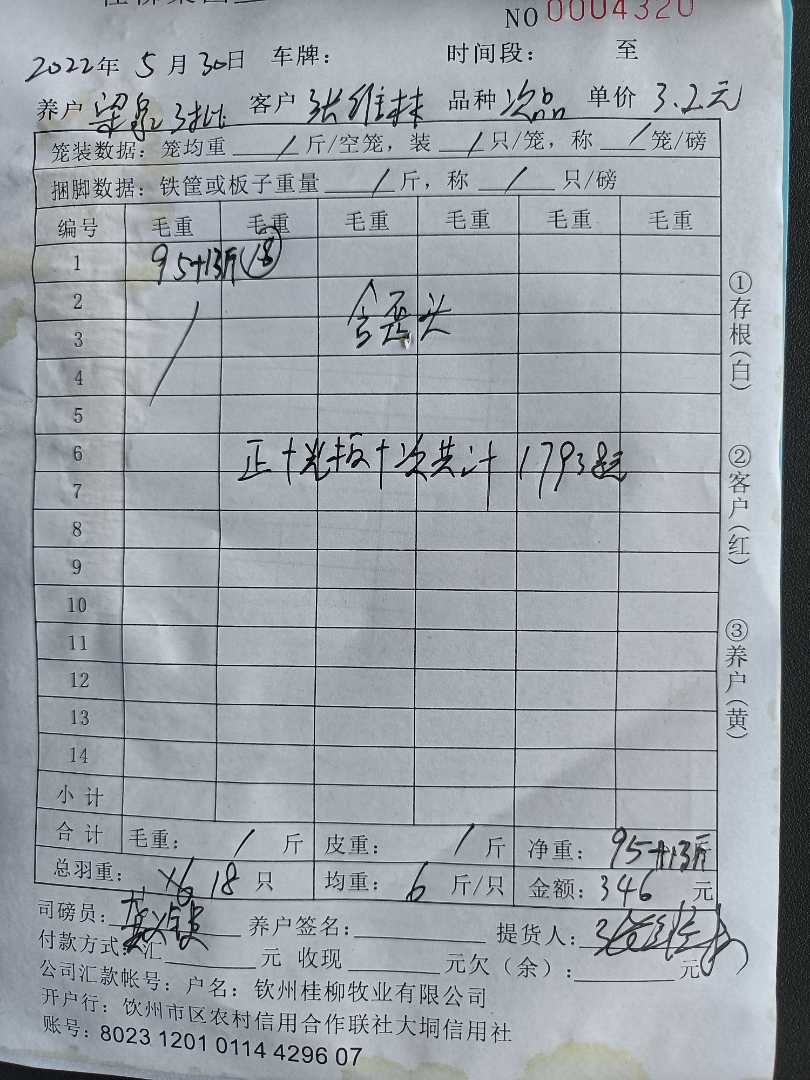 NO 0004320
2022年 5月 30日 车牌： 时间段： 至
养户 梁 客户 张维林 品种 次品 单价 3.2元
笼装数据：笼均重 / 斤/空笼，装 / 只/笼，称 / 笼/磅
捆脚数据：铁筐或板子重量 / 斤，称 / 只/磅
编号 毛重 毛重 毛重 毛重 毛重 毛重
1 95+13斤 18
2
3 含歪头
4
5
6 正+光板+次共计 17938元
7
8
9
10
11
12
13
14
小计
合计 毛重： / 斤 皮重： / 斤 净重： 95+13斤
总羽重： 18 只 均重： 6 斤/只 金额： 346 元
司磅员： 养户签名： 提货人：
付款方式：汇 元 收现 元欠（余）： 元
公司汇款帐号：户名：钦州桂柳牧业有限公司
开户行：钦州市区农村信用合作联社大垌信用社
账号：8023 1201 0114 4296 07
①存根（白）
②客户（红）
③养户（黄）